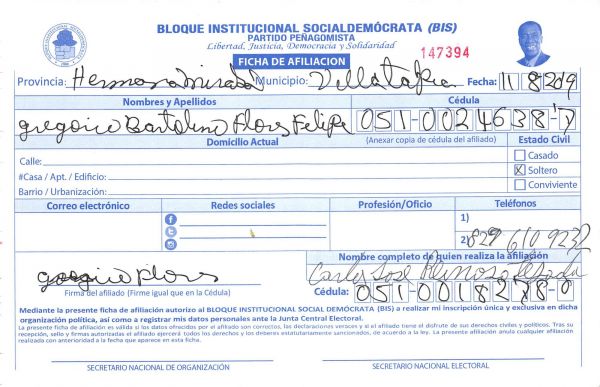 BLOQUE INSTITUCIONAL SOCIALDEMÓCRATA (BIS)
PARTIDO PEÑAGOMISTA
Libertad, Justicia, Democracia y Solidaridad
FICHA DE AFILIACION
147394
Provincia: Hermanas Mirabal Municipio: Villa Tapia Fecha: 11 8 2019
Nombres y Apellidos Cédula
gregorio Bartolino Flores Felipe 051-0024638-7
Domicilio Actual (Anexar copia de cédula del afiliado) Estado Civil
Calle: Casado
#Casa / Apt. / Edificio: X Soltero
Barrio / Urbanización: Conviviente
Correo electrónico Redes sociales Profesión/Oficio Teléfonos
1)
2) 829 610 9232
Nombre completo de quien realiza la afiliación
gregorio flores Carlos José
Firma del afiliado (Firme igual que en la Cédula) Cédula: 051-0018278-0
Mediante la presente ficha de afiliación autorizo al BLOQUE INSTITUCIONAL SOCIAL DEMÓCRATA (BIS) a realizar mi inscripción única y exclusiva en dicha
organización política, así como a registrar mis datos personales ante la Junta Central Electoral.
La presente ficha de afiliación es válida si los datos ofrecidos por el afiliado son correctos, las declaraciones veraces y si el afiliado tiene el disfrute de sus derechos civiles y políticos. Tras su
recepción, sello y firmas autorizadas el afiliado ejercerá todos los derechos y los deberes estatutariamente sancionados, de acuerdo a la ley. La presente afiliación anula cualquier afiliación
realizada con anterioridad a la fecha que aparece en esta ficha.
SECRETARIO NACIONAL DE ORGANIZACIÓN SECRETARIO NACIONAL ELECTORAL